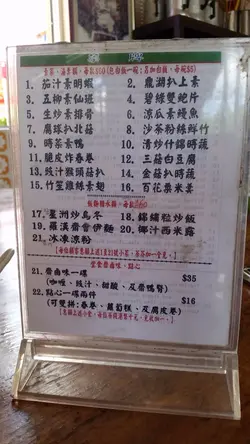 1. 茄汁素明蝦
2. 龍湖扒上素
3. 五柳素仙班
4. 碧綠雙鮑片
5. 生炒素排骨
6. 涼瓜素鰻魚
7. 腐竹扒北菇
8. 沙茶粉絲鮮竹
9. 時菜素鴨
10. 清炒什錦時蔬
11. 脆皮炸春卷
12. 三菇㕑豆腐
13. 豉汁猴頭菇扒
14. 金菇扒時蔬
15. 竹笙雜絲素翅
16. 百花粟米羹
17. 星洲炒烏冬
18. 錦繡粒炒飯
19. 羅漢齋會伊麵
20. 椰汁西米露
21. 冰凍涼粉
21. 齋鹵味一碟 $35
(咖喱、豉汁、甜酸、及齋鴨腎)
22. 點心一碟兩件 $16
(可雙拼:春卷、蘿蔔糕、及腐皮卷)